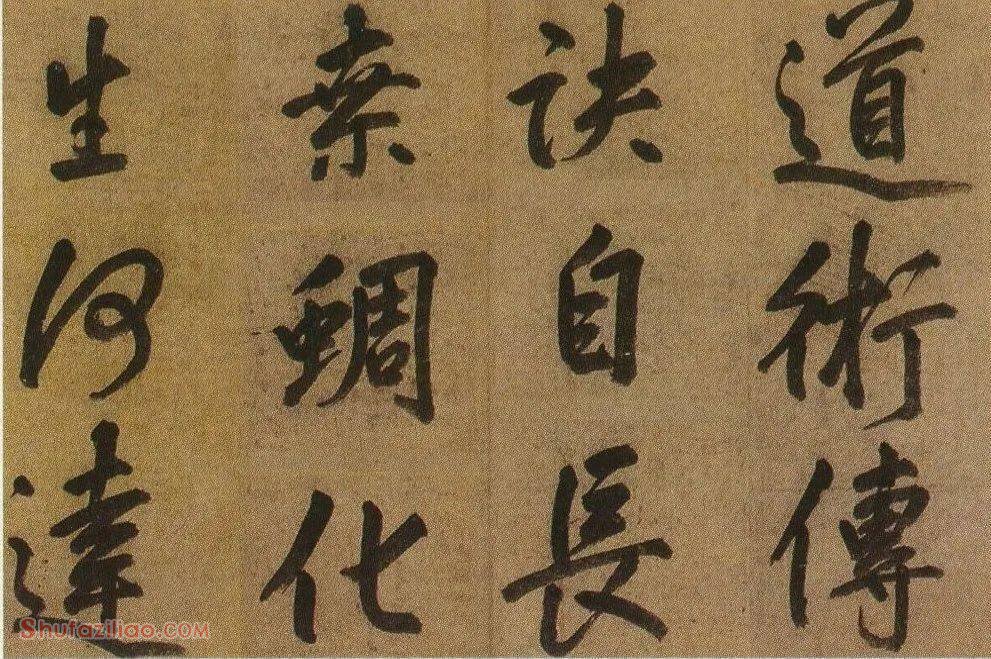 道術傳
訣自長
蜩化
生何達
Shufaziliao.COM